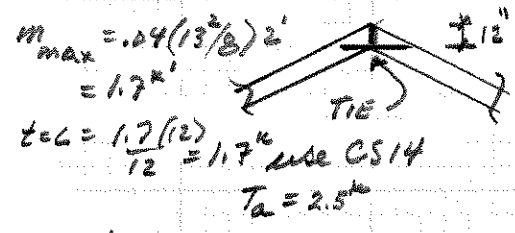 m max = .04(13²/8)2'
= 1.7ᵏ'
12"
TIE
t=c= 1.7(12)/12 = 1.7ᵏ use CS14
Ta = 2.5ᵏ